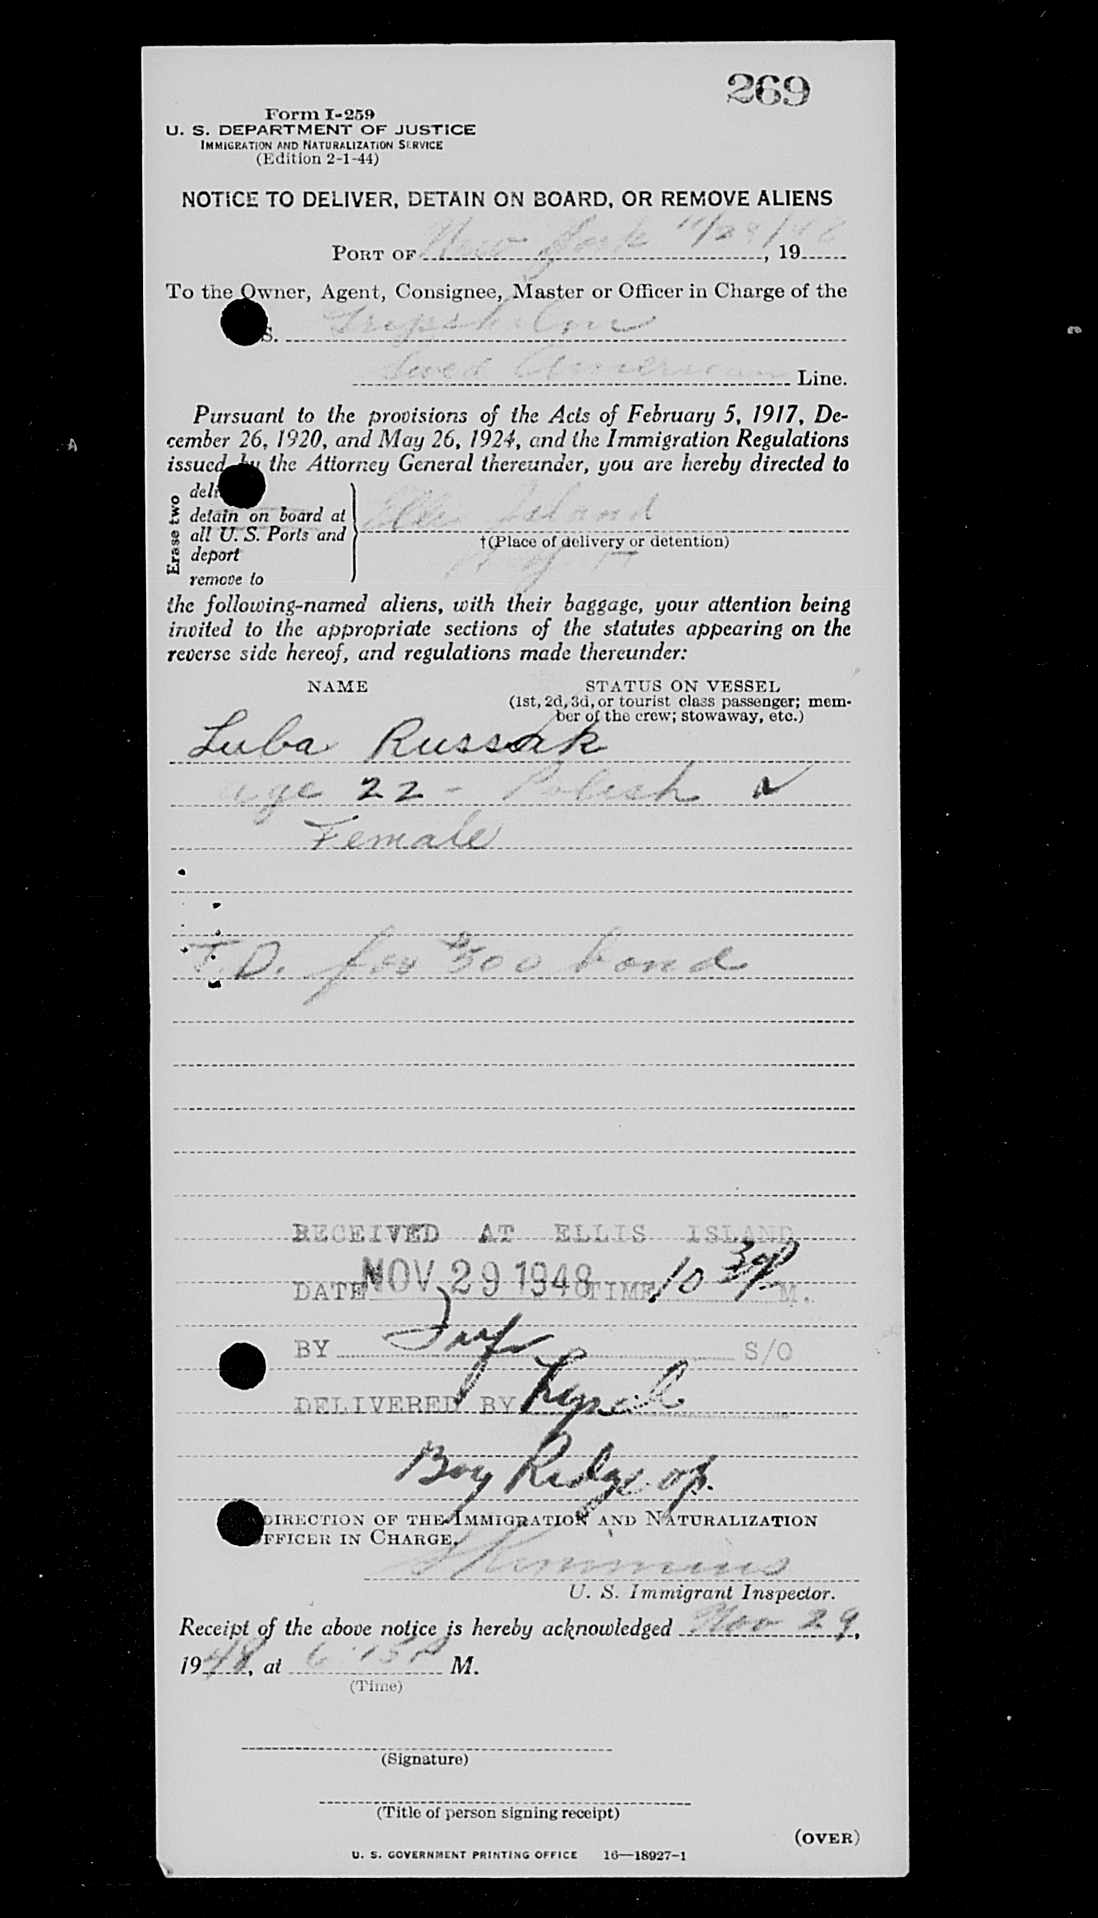 269
Form I-259
U. S. DEPARTMENT OF JUSTICE
IMMIGRATION AND NATURALIZATION SERVICE
(Edition 2-1-44)
NOTICE TO DELIVER, DETAIN ON BOARD, OR REMOVE ALIENS
PORT OF New York 11/29/48, 19
To the Owner, Agent, Consignee, Master or Officer in Charge of the
S. Gripsholm
Swed American Line.
Pursuant to the provisions of the Acts of February 5, 1917, De-
cember 26, 1920, and May 26, 1924, and the Immigration Regulations
issued by the Attorney General thereunder, you are hereby directed to
Erase two
deli
detain on board at
all U. S. Ports and
deport
remove to
Ellis Island
†(Place of delivery or detention)
the following-named aliens, with their baggage, your attention being
invited to the appropriate sections of the statutes appearing on the
reverse side hereof, and regulations made thereunder:
NAME STATUS ON VESSEL
(1st, 2d, 3d, or tourist class passenger; mem-
ber of the crew; stowaway, etc.)
Luba Russak
age 22 - Polish ✓
Female
T.D. for $500 bond
RECEIVED AT ELLIS ISLAND
DATE NOV 29 1948 TIME 10 30 P M.
BY S/O
DELIVERED BY Lynch
Bay Ridge op.
DIRECTION OF THE IMMIGRATION AND NATURALIZATION
OFFICER IN CHARGE.
U. S. Immigrant Inspector.
Receipt of the above notice is hereby acknowledged Nov 29,
1948, at 6:15 P M.
(Time)
(Signature)
(Title of person signing receipt)
(OVER)
U. S. GOVERNMENT PRINTING OFFICE 16—18927-1